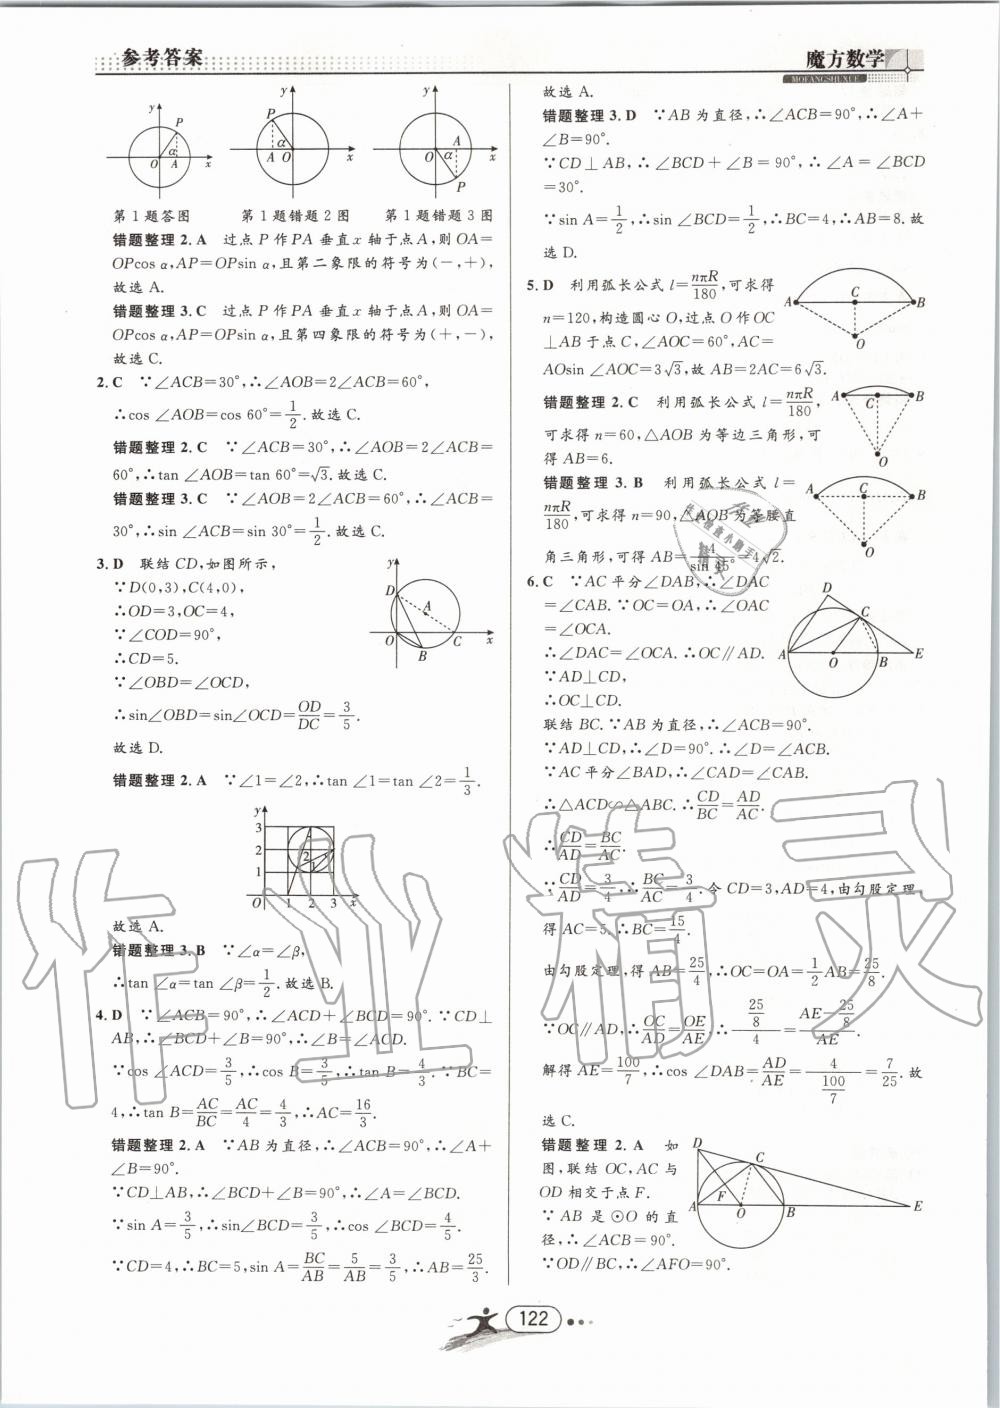 参考答案
魔方数学
MOFANGSHUXUE
y
P
α
O
A
x
y
P
α
A
O
x
y
A
O
α
P
x
第1题答图 第1题错题2图 第1题错题3图
错题整理2. A 过点P作PA垂直x轴于点A,则OA=
OPcos α,AP=OPsin α,且第二象限的符号为(-,+),
故选A.
错题整理3. C 过点P作PA垂直x轴于点A,则OA=
OPcos α,AP=OPsin α,且第四象限的符号为(+,-),
故选C.
2. C ∵∠ACB=30°,∴∠AOB=2∠ACB=60°,
∴cos ∠AOB=cos 60°=1/2.故选C.
错题整理2. C ∵∠ACB=30°,∴∠AOB=2∠ACB=
60°,∴tan ∠AOB=tan 60°=√3.故选C.
错题整理3. C ∵∠AOB=2∠ACB=60°,∴∠ACB=
30°,∴sin ∠ACB=sin 30°=1/2.故选C.
3. D 联结CD,如图所示,
∵D(0,3),C(4,0),
∴OD=3,OC=4,
∵∠COD=90°,
∴CD=5.
∵∠OBD=∠OCD,
∴sin∠OBD=sin∠OCD=OD/DC=3/5.
故选D.
y
D
A
O
B
C
x
错题整理2. A ∵∠1=∠2,∴tan ∠1=tan ∠2=1/3.
y
3
2
1
2
1
O
1 2 3 x
故选A.
错题整理3. B ∵∠α=∠β,
∴tan ∠α=tan ∠β=1/2.故选B.
4. D ∵∠ACB=90°,∴∠ACD+∠BCD=90°.∵CD⊥
AB,∴∠BCD+∠B=90°,∴∠B=∠ACD.
∵cos ∠ACD=3/5,∴cos B=3/5,∴tan B=4/3.∵BC=
4,∴tan B=AC/BC=AC/4=4/3,∴AC=16/3.
错题整理2. A ∵AB为直径,∴∠ACB=90°,∴∠A+
∠B=90°.
∵CD⊥AB,∴∠BCD+∠B=90°,∴∠A=∠BCD.
∵sin A=3/5,∴sin∠BCD=3/5,∴cos ∠BCD=4/5.
∵CD=4,∴BC=5,sin A=BC/AB=5/AB=3/5,∴AB=25/3.
故选A.
错题整理3. D ∵AB为直径,∴∠ACB=90°,∴∠A+
∠B=90°.
∵CD⊥AB,∴∠BCD+∠B=90°,∴∠A=∠BCD
=30°.
∵sin A=1/2,∴sin ∠BCD=1/2,∴BC=4,∴AB=8.故
选D.
5. D 利用弧长公式l=nπR/180,可求得
n=120,构造圆心O,过点O作OC
⊥AB于点C,∠AOC=60°,AC=
AOsin ∠AOC=3√3,故AB=2AC=6√3.
A
C
B
O
错题整理2. C 利用弧长公式l=nπR/180,
可求得n=60,△AOB为等边三角形,可
得AB=6.
A
C
B
O
错题整理3. B 利用弧长公式l=
nπR/180,可求得n=90,△AOB为等腰直
角三角形,可得AB=4/sin 45°=4√2.
A
C
B
O
6. C ∵AC平分∠DAB,∴∠DAC
=∠CAB.∵OC=OA,∴∠OAC
=∠OCA.
∴∠DAC=∠OCA.∴OC∥AD.
∵AD⊥CD,
∴OC⊥CD.
D
C
A
O
B
E
联结BC.∵AB为直径,∴∠ACB=90°.
∵AD⊥CD,∴∠D=90°.∴∠D=∠ACB.
∵AC平分∠BAD,∴∠CAD=∠CAB.
∴△ACD∽△ABC.∴CD/BC=AD/AC.
∴CD/AD=BC/AC.
∵CD/AD=3/4,∴BC/AC=3/4.令CD=3,AD=4,由勾股定理
得AC=5.∴BC=15/4.
由勾股定理,得AB=25/4,∴OC=OA=1/2AB=25/8.
∵OC∥AD,∴OC/AD=OE/AE,∴(25/8)/4=(AE-25/8)/AE.
解得AE=100/7,∴cos ∠DAB=AD/AE=4/(100/7)=7/25.故
选C.
错题整理2. A 如
图,联结OC,AC与
OD相交于点F.
∵AB是⊙O的直
径,∴∠ACB=90°.
∵OD∥BC,∴∠AFO=90°.
D
C
F
A
O
B
E
作业精灵
122